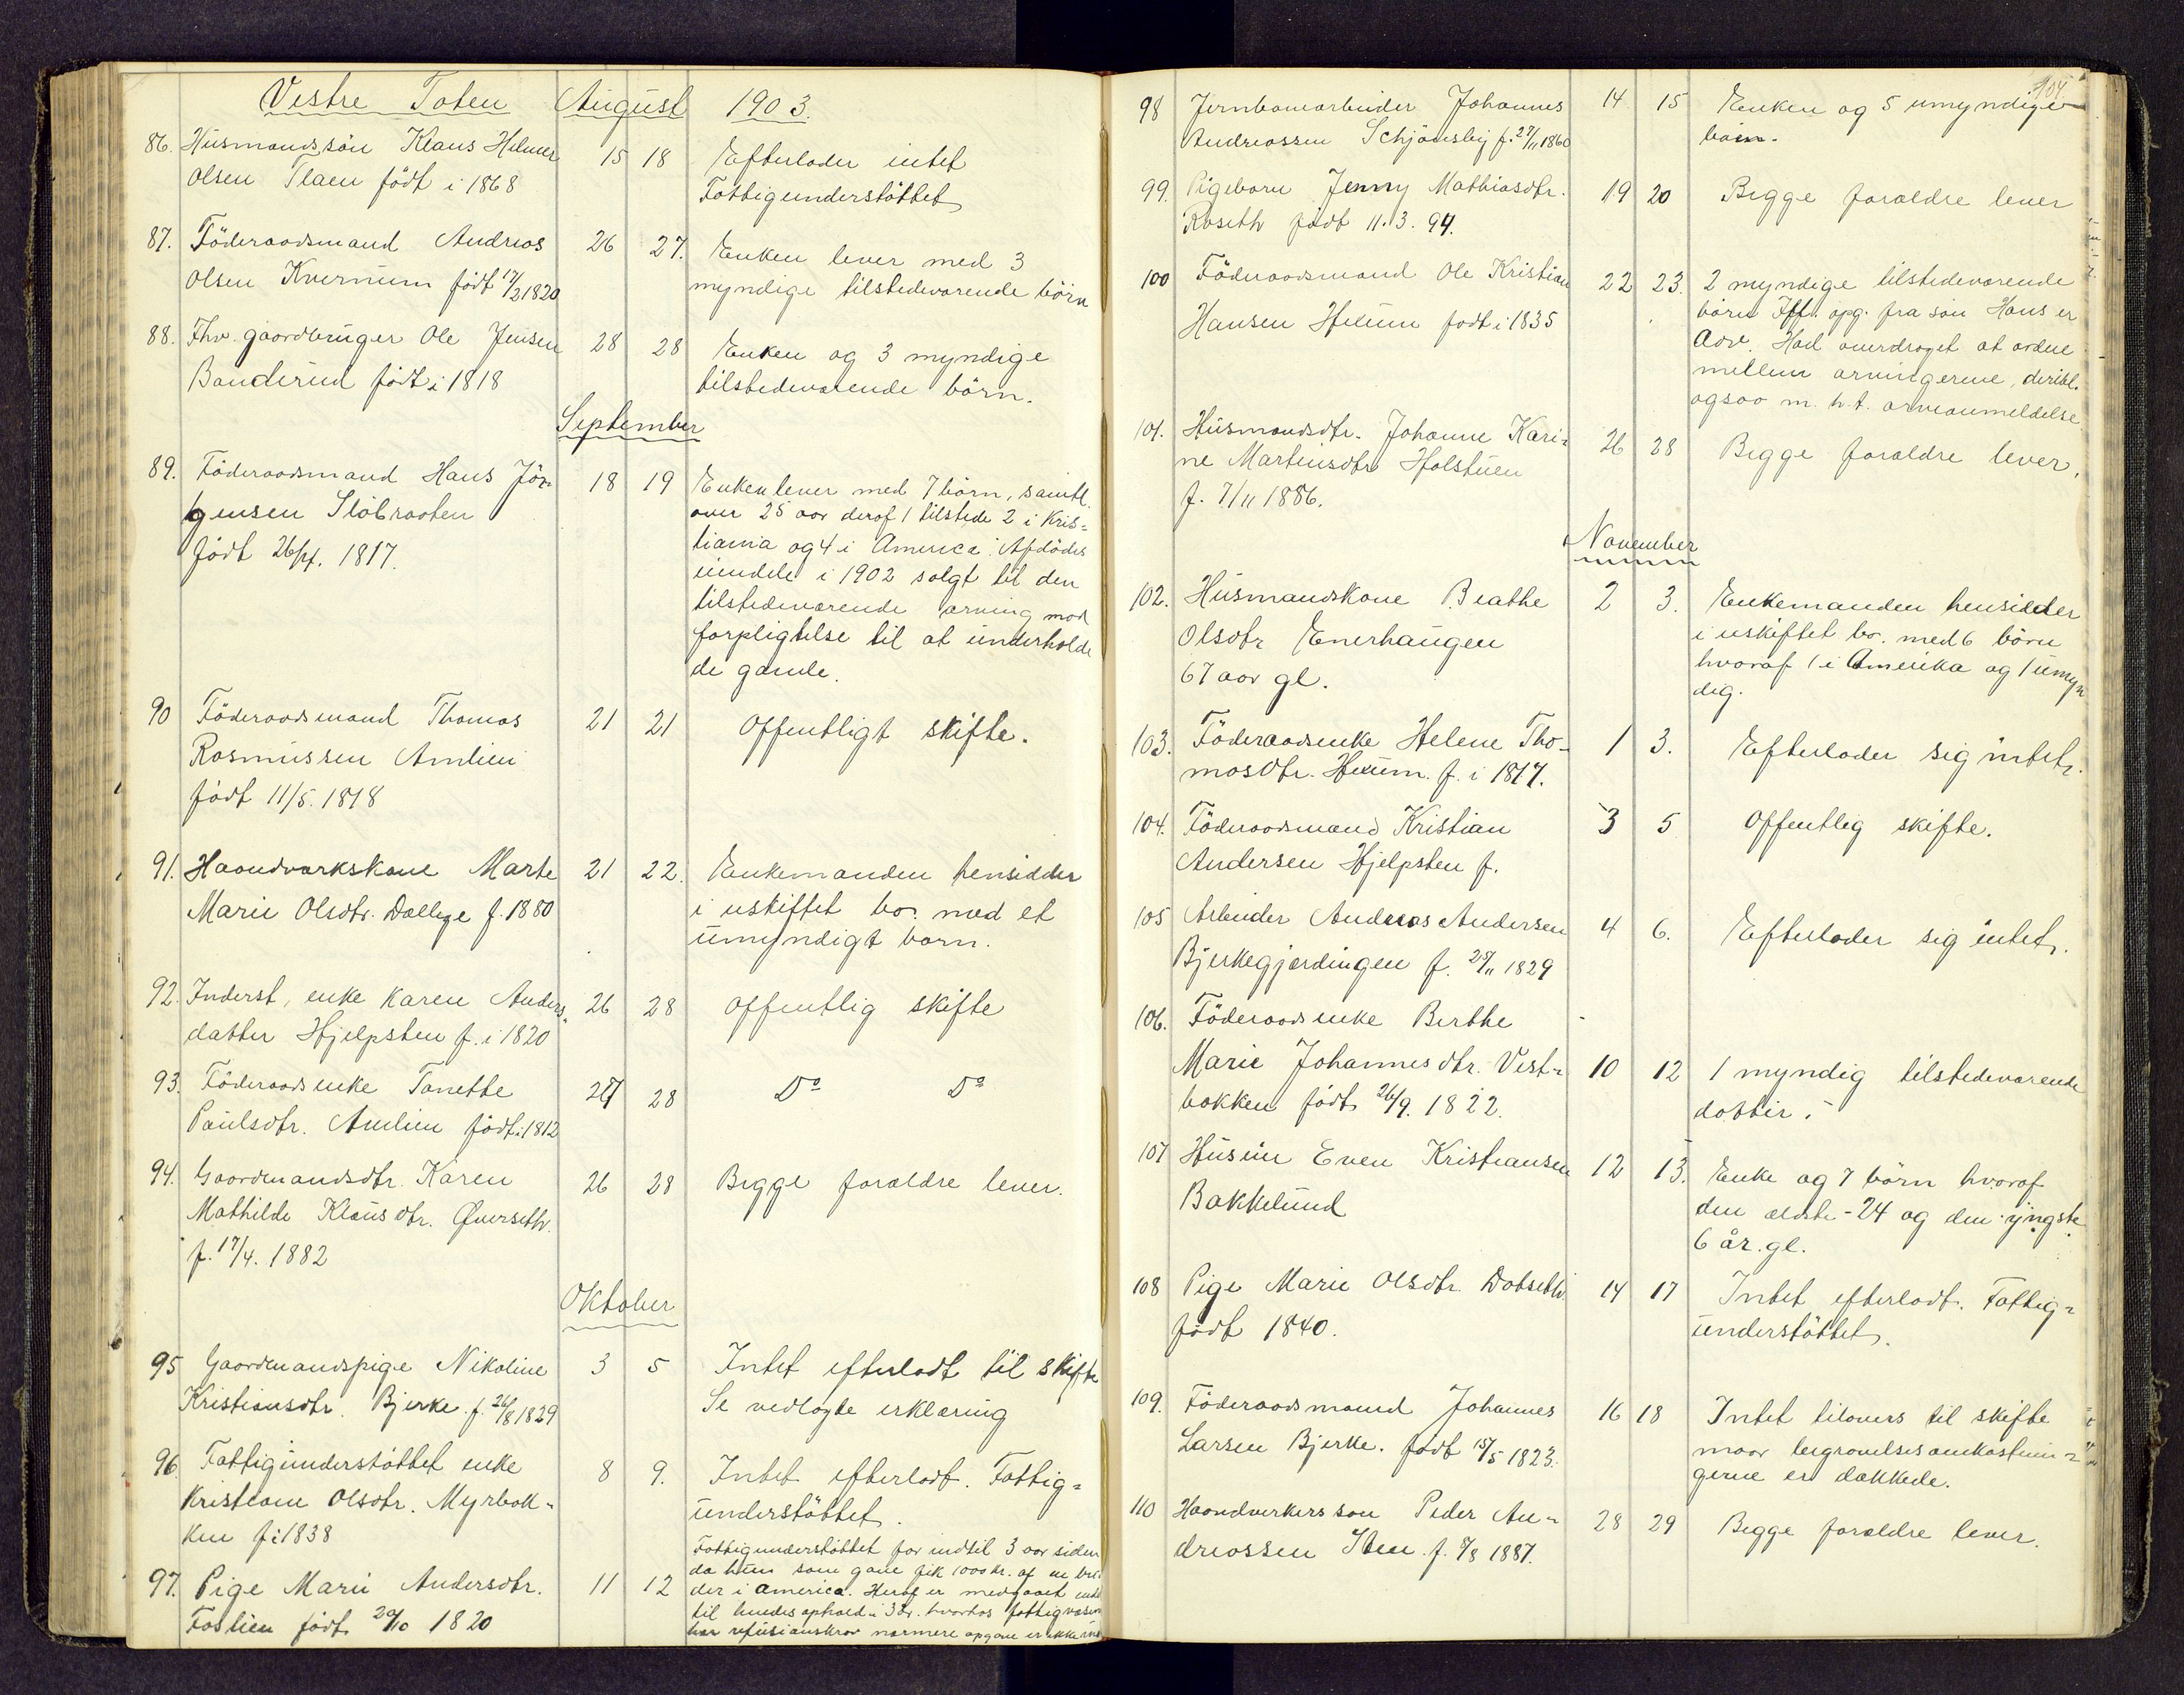 Vestre Toten August 1903.
86. Husmandssön Klaus Helmer 15 18 Efterlader intet
Olsen Flaen födt i 1868 Fattigunderstöttet
87. Föderaadsmand Andreas 26 27. Enken lever med 3
Olsen Kvernum födt 17/2 1820 myndige tilstedeværende börn
88. Fhv. gaardbruger Ole Jensen 28 28 Enken og 3 myndige
Banderud födt i 1818 tilstedeværende börn.
September
89. Föderaadsmand Hans Jör- 18 19 Enken lever med 7 börn, samtl.
gensen Slöbraaten over 25 aar deraf 1 tilstede 2 i Kris-
födt 26/4. 1817. tiania og 4 i America. Afdödes
eiendele i 1902 solgt til den
tilstedeværende arving mod
forpligtelse til at underholde
de gamle.
90 Föderaadsmand Thomas 21 21 Offentligt skifte.
Rasmussen Amlien
födt 11/5. 1818
91. Haandværkskone Marte 21 22. Enkemanden hensidder
Marie Olsdtr. Dællege f. 1880 i uskiftet bo. med et
umyndigt barn.
92. Inderst, enke Karen Anders- 26 28 Offentlig skifte
datter Hjelpsten f. i 1820
93. Föderaads enke Tanette 27 28 Do Do
Paulsdtr. Amlien födt i 1812
94. Gaardmandsdtr. Karen 26 28 Begge forældre lever.
Mathilde Klausdtr. Qverseth.
f. 17/4. 1882
Oktober
95 Gaardmandspige Nikoline 3 5 Intet efterladt til skifte
Kristiansdtr. Bjerke f. 26/8 1829 Se vedlagte erklæring
96. Fattigunderstöttet enke 8 9. Intet efterladt. Fattig-
Kristiane Olsdtr. Myrbak- understöttet.
ken f. i 1838
97. Pige Marie Andersdtr. 11 12 Fattigunderstöttet for indtil 3 aar siden
Foslien födt 20/10 1820 da hun som gave fik 1000 kr. af en bro-
der i America. Heraf er medgaaet
til hendes ophold i 3 år. hvorhos fattigvæsen
har refusionskrav nærmere opgave er ikke
104.
98 Jernbanearbeider Johannes 14 15 Enken og 5 umyndige
Andreassen Schjönsby f. 27/11 1860 börn.
99. Pigebarn Jenny Mathiasdtr. 19 20 Begge forældre lever
Roseth födt 11. 3. 94.
100 Föderaadsmand Ole Kristian 22 23. 2 myndige tilstedeværende
Hansen Hexum födt i 1835 börn Iflt. opg. fra sön Hans er
Adv. Hod overdraget at ordne
mellem arvingerne, deribl.
ogsaa m. h. t. arveanmeldelse
101. Husmandsdtr. Johanne Kari- 26 28 Begge forældre lever.
ne Martinsdtr Holstuen
f. 7/11 1886.
November
102. Husmandskone Beathe 2 3. Enkemanden hensidder
Olsdtr Enerhaugen i uskiftet bo. med 6 börn
67 aar gl. hvoraf 1 i Amerika og 1 umyn
dig.
103. Föderaadsenke Helene Tho- 1 3. Efterlader sig intet.
masdtr. Hexum. f. i 1817.
104. Föderaadsmand Kristian 3 5 Offentlig skifte.
Andersen Hjelpsten f.
105 Arbeider Andreas Andersen 4 6. Efterlader sig intet.
Bjerkegjerdingen f. 28/11 1829
106. Föderaads enke Berthe
Marie Johannesdtr. Vest- 10 12 1 myndig tilstedeværende
bakken födt 26/9. 1822. datter.
107 Huseier Even Kristiansen 12 13. Enke og 7 börn hvoraf
Bakkelund den ældste - 24 og den yngste
6 år. gl.
108 Pige Marie Olsdtr. Datseth. 14 17 Intet efterladt. Fattig-
födt 1840. understöttet.
109. Föderaadsmand Johannes 16 18 Intet tilovers til skifte
Larsen Bjerke. födt 15/5 1823. naar begravelsesomkostnin-
gerne er dækkede.
110 Haandverkers sön Peder An- 28 29 Begge forældre lever.
dreassen Sten f. 8/8 1887.